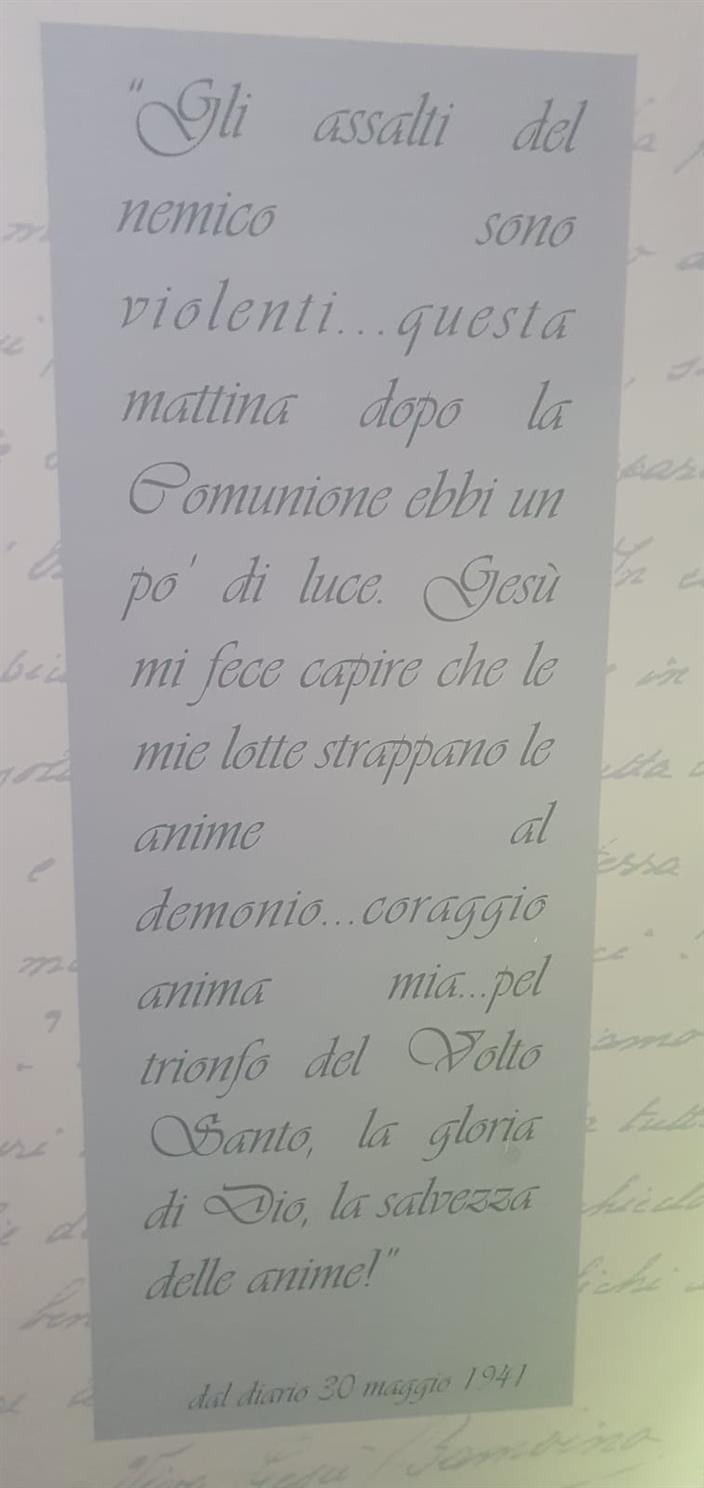 "Gli assalti del
nemico sono
violenti...questa
mattina dopo la
Comunione ebbi un
po' di luce. Gesù
mi fece capire che le
mie lotte strappano le
anime al
demonio...coraggio
anima mia...pel
trionfo del Volto
Santo, la gloria
di Dio, la salvezza
delle anime!"
dal diario 30 maggio 1941